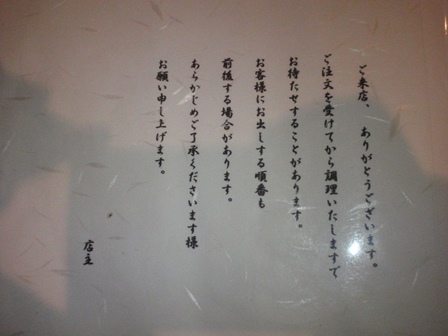 ご来店、ありがとうございます。
ご注文を受けてから調理いたしますで
お待たせすることがあります。
お客様にお出しする順番も
前後する場合があります。
あらかじめご了承くださいます様
お願い申し上げます。
店主